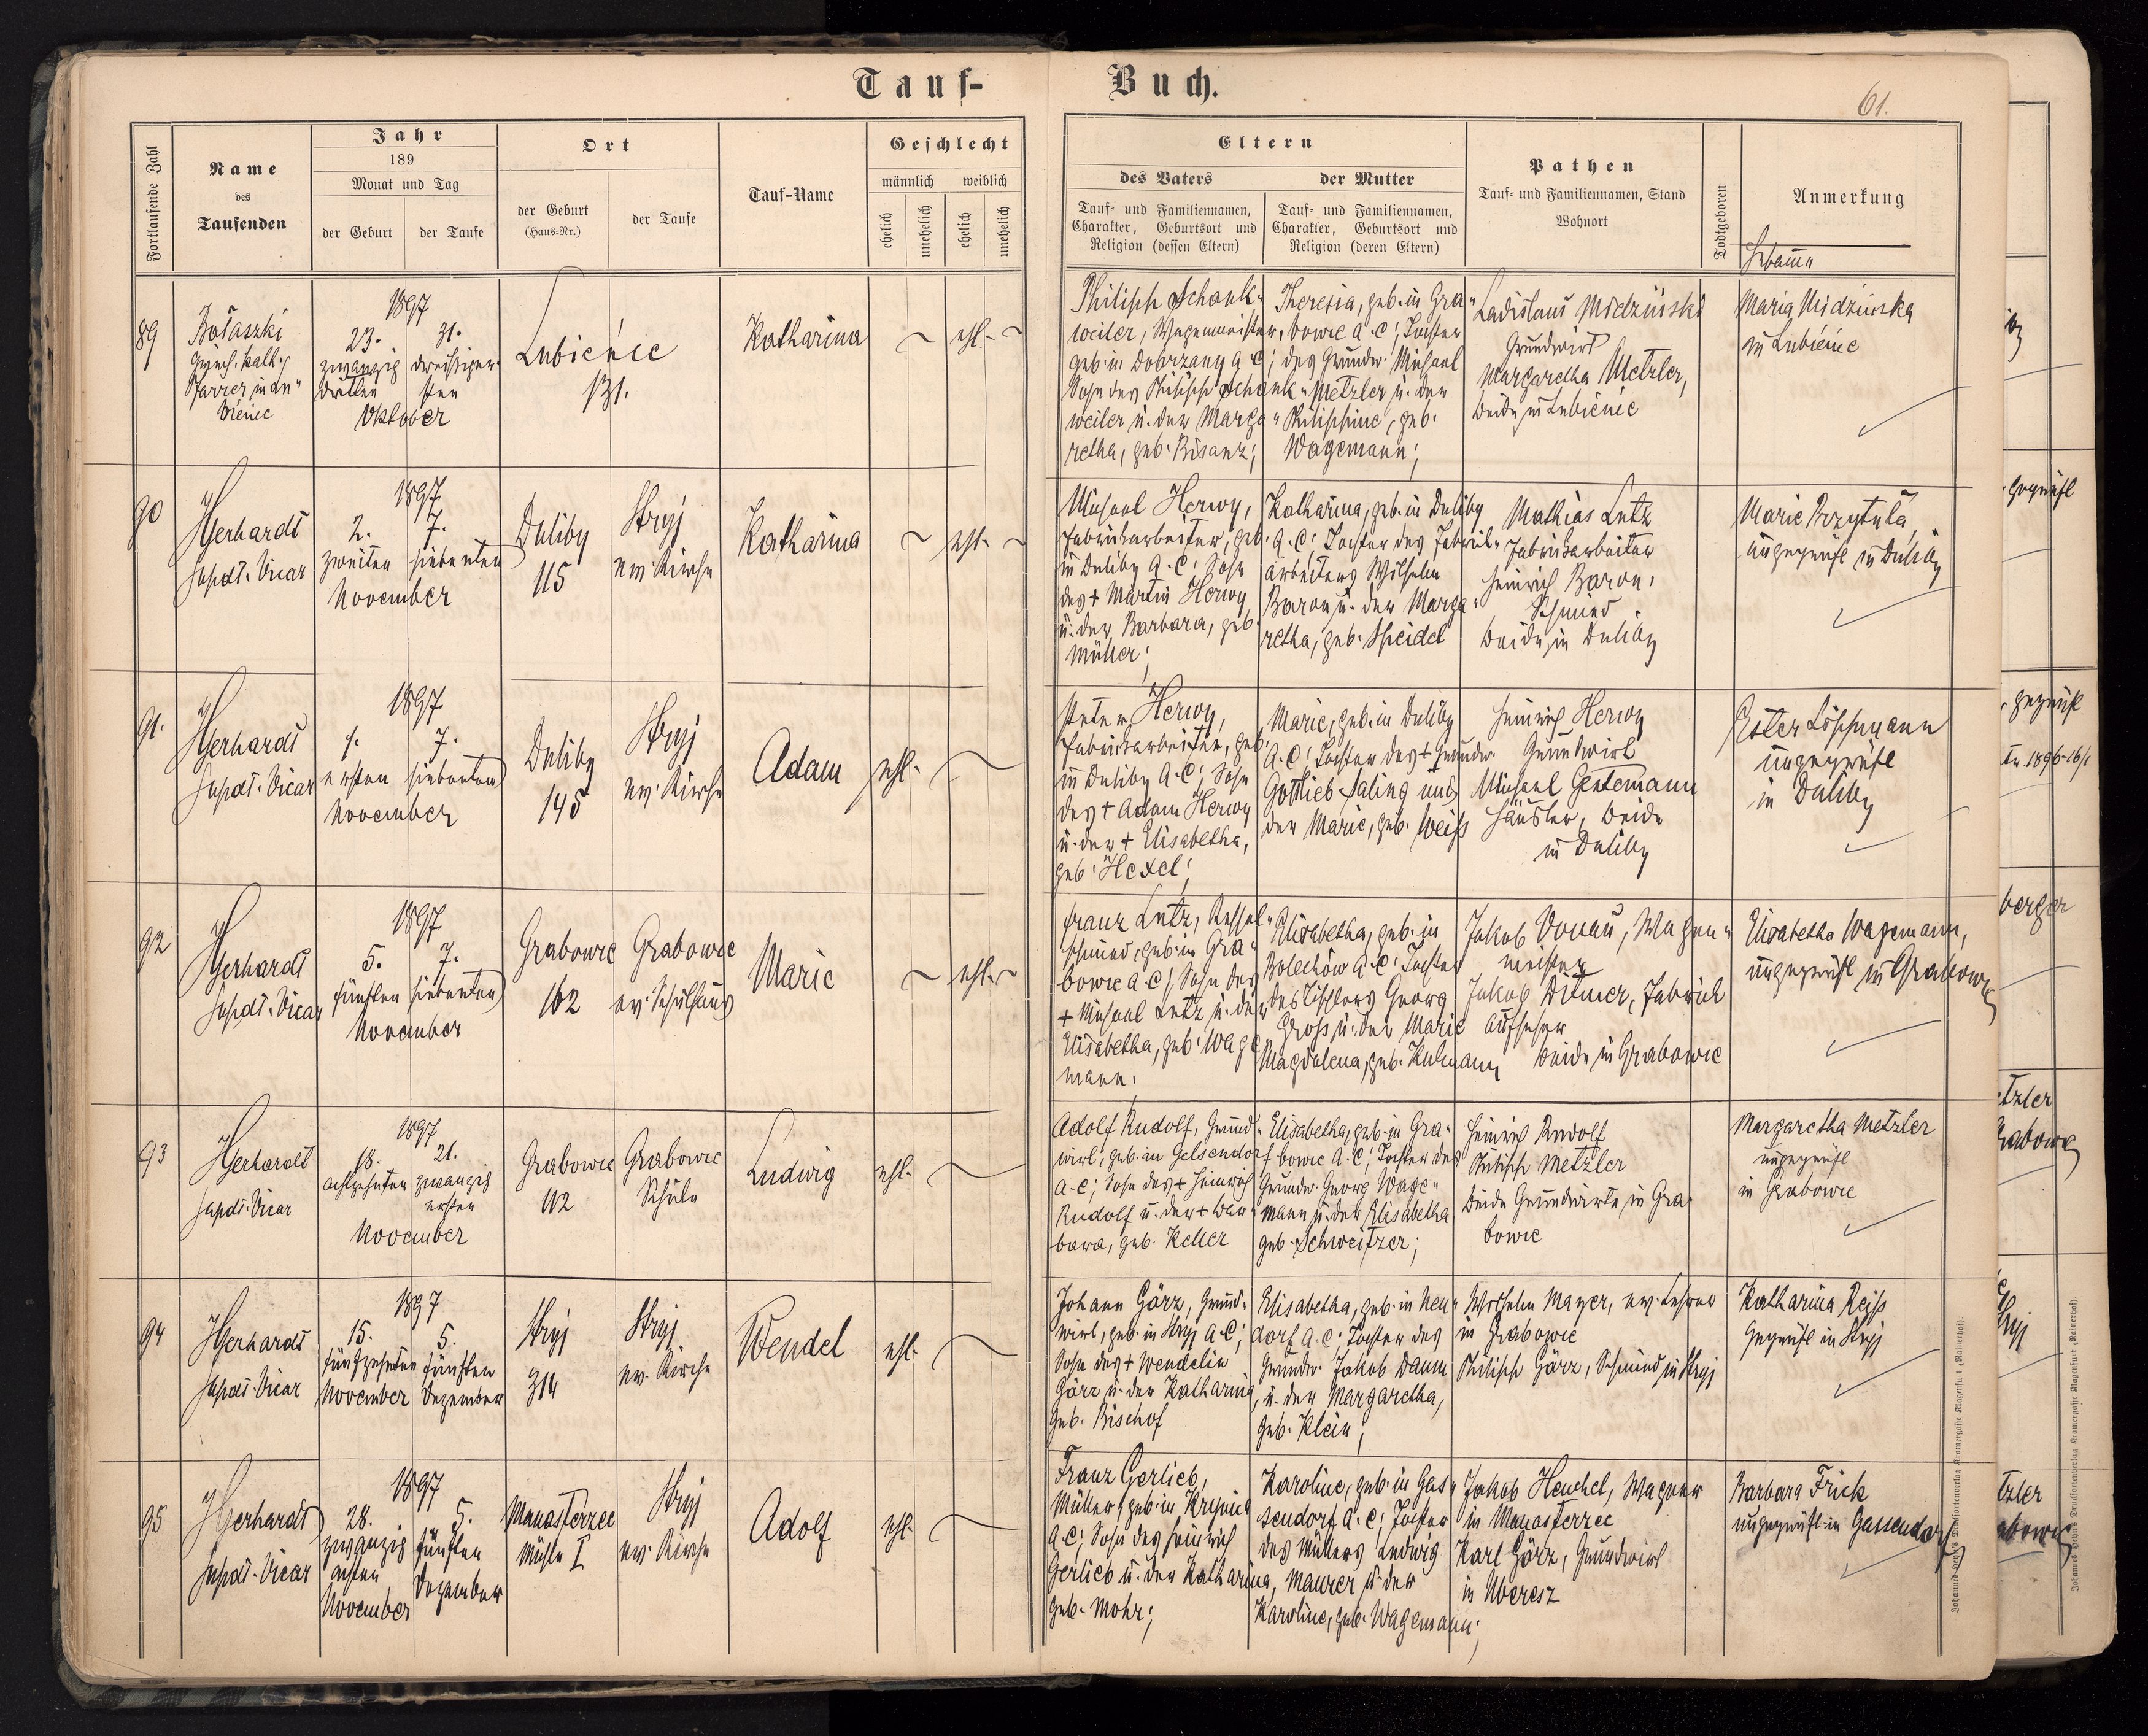 Tauf-
Buch.
61.
Fortlaufende Zahl
Name
des
Taufenden
Jahr
189
Monat und Tag
der Geburt
der Taufe
Ort
der Geburt
(Haus-Nr.)
der Taufe
Tauf-Name
Geschlecht
männlich weiblich
ehelich
unehelich
ehelich
unehelich
Eltern
des Vaters
Tauf- und Familiennamen,
Charakter, Geburtsort und
Religion (dessen Eltern)
der Mutter
Tauf- und Familiennamen,
Charakter, Geburtsort und
Religion (deren Eltern)
Pathen
Tauf- und Familiennamen, Stand
Wohnort
Todtgeboren
Anmerkung
Hebamme
89
Bołaszki
griech. kath.
Pfarrer in Lu-
bienic
1897
23.
zwanzig
dritten
31.
dreißiger-
sten
Oktober
Lubieńce
131.
Katharina
ehl.
Philipp Schank-
weiler, Wagenmeister,
geb. in Dobrzany A.C;
Sohn des Philipp Schank-
weiler u. der Marga-
retha, geb. Bisanz;
Theresia, geb. in Gra-
bowce A.C; Tochter
des Grundw. Michael
Metzler u. der
Philippine, geb.
Wagemann;
Ladislaus Midziński
Grundwirt
Margaretha Metzler,
beide in Lubience
Maria Midzinska
in Lubience
90
Gerhardt
Supdt. Vicar
1897
2.
zweiten
7.
siebenten
November
Duliby
115
Stryj
ev. Kirche
Katharina
ehl.
Michael Herwy,
Fabriksarbeiter, geb.
in Duliby A.C; Sohn
des + Martin Herwy
u. der Barbara, geb.
Müller;
Katharina, geb. in Duliby
A.C; Tochter des Fabriks-
arbeiters Wilhelm
Baron u. der Marga-
retha, geb. Scheidel
Mathias Lutz
Fabriksarbeiter
Heinrich Baron,
Schmied
beide in Duliby
Marie Brzytuła,
ungeprüft in Duliby
91.
Gerhardt
Supdt. Vicar
1897
1.
ersten
7.
siebenten
November
Duliby
145
Stryj
ev. Kirche
Adam
ehl.
Peter Herwy,
Fabriksarbeiter, geb.
in Duliby A.C; Sohn
des + Adam Herwy
u. der + Elisabetha,
geb. Hexel;
Marie, geb. in Duliby
A.C; Tochter des + Grundw.
Gottlieb Saling und
der Marie, geb. Weiß
Heinrich Herwy
Grundwirt
Michael Gentemann
Häusler, beide
in Duliby
Ester Löffmann
ungeprüft
in Duliby
92
Gerhardt
Supdt. Vicar
1897
5.
fünften
7.
siebenten
November
Grabowce
102
Grabowce
ev. Schulhaus
Marie
ehl.
Franz Lutz, Kessel-
schmied, geb. in Gra-
bowce A.C; Sohn des
+ Michael Lutz u. der
Elisabetha, geb. Wage-
mann.
Elisabetha, geb. in
Bolechów A.C; Tochter
des Tischlers Georg
Groß u. der Marie
Magdalena, geb. Kulmann
Jakob Donau, Wagen-
meister
Jakob Ditmer, Fabrick
Aufseher
beide in Grabowce
Elisabetha Wagemann,
ungeprüft in Grabowce
93
Gerhardt
Supdt. Vicar
1897
18.
achtzehnten
21.
zwanzig
ersten
November
Grabowce
112
Grabowce
Schule
Ludwig
ehl.
Adolf Rudolf, Grund-
wirt, geb. in Gelsendorf
A.C; Sohn des + Heinrich
Rudolf u. der + Bar-
bara, geb. Keller
Elisabetha, geb. in Gra-
bowce A.C; Tochter des
Grundw. Georg Wage-
mann u. der Elisabetha
geb. Schweitzer;
Heinrich Rudolf
Philipp Metzler
beide Grundwirte in Gra-
bowce
Margaretha Metzler
ungeprüft
in Grabowce
94
Gerhardt
Supdt. Vicar
1897
15.
fünfzehnten
November
5.
fünften
Dezember
Stryj
314
Stryj
ev. Kirche
Wendel
ehl.
Johann Görz, Grund-
wirt, geb. in Stryj A.C;
Sohn des + Wendelin
Görz u. der Katharina,
geb. Bischof
Elisabetha, geb. in Neu-
dorf A.C; Tochter des
Grundw. Jakob Daum
u. der Margaretha,
geb. Klein;
Wilhelm Mayer, ev. Lehrer
in Grabowce
Philipp Görz, Schmied in Stryj
Katharina Reiß
geprüft in Stryj
95
Gerhardt
Supdt. Vicar
1897
28.
zwanzig
achten
November
5.
fünften
Dezember
Manasterzec
Mühle I
Stryj
ev. Kirche
Adolf
ehl.
Franz Gerlieb,
Müller, geb. in
A.C; Sohn des Heinrich
Gerlieb u. der Katharina,
geb. Mohr;
Karoline, geb. in Gas-
sendorf A.C; Tochter
des Müllers Ludwig
Maurer u. der
Karoline, geb. Wagemann;
Jakob Henchel, Wagner
in Manasterzec
Karl Görz, Grundwirt
in Uberesz
Barbara Frick
ungeprüft in Gassendorf